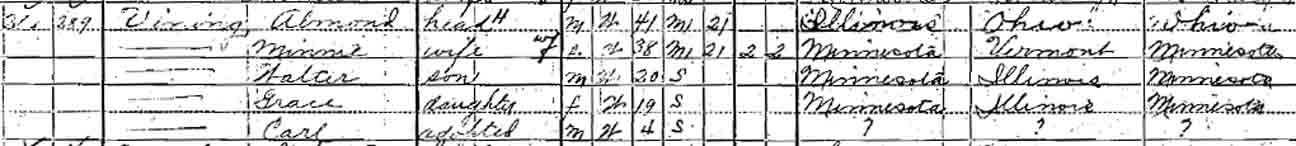 289 Vining Almond head M W 41 M1 21 Illinois Ohio Ohio
— Minnie wife F W 38 M1 21 2 2 Minnesota Vermont Minnesota
— Walter son M W 20 S Minnesota Illinois Minnesota
— Grace daughter F W 19 S Minnesota Illinois Minnesota
— Carl adopted M W 4 S ? ? ?